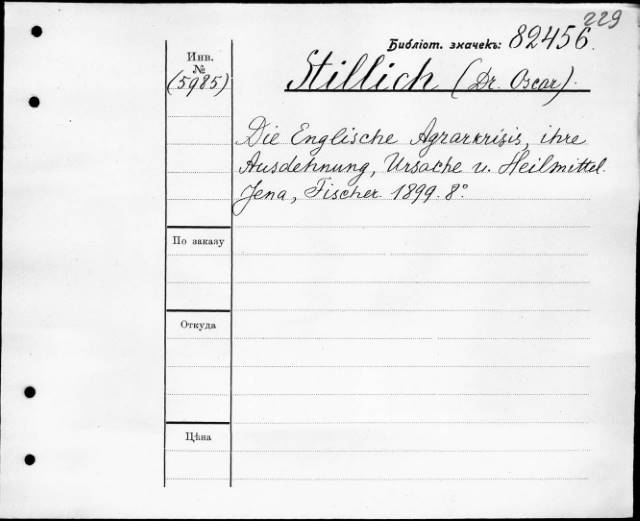 229
Библіот. значекъ: 82456.
Инв.
№
(5985)
Stillich (Dr. Oscar).
Die Englische Agrarkrisis, ihre
Ausdehnung, Ursache u. Heilmittel.
Jena, Fischer 1899. 8°
По заказу
Откуда
Цѣна